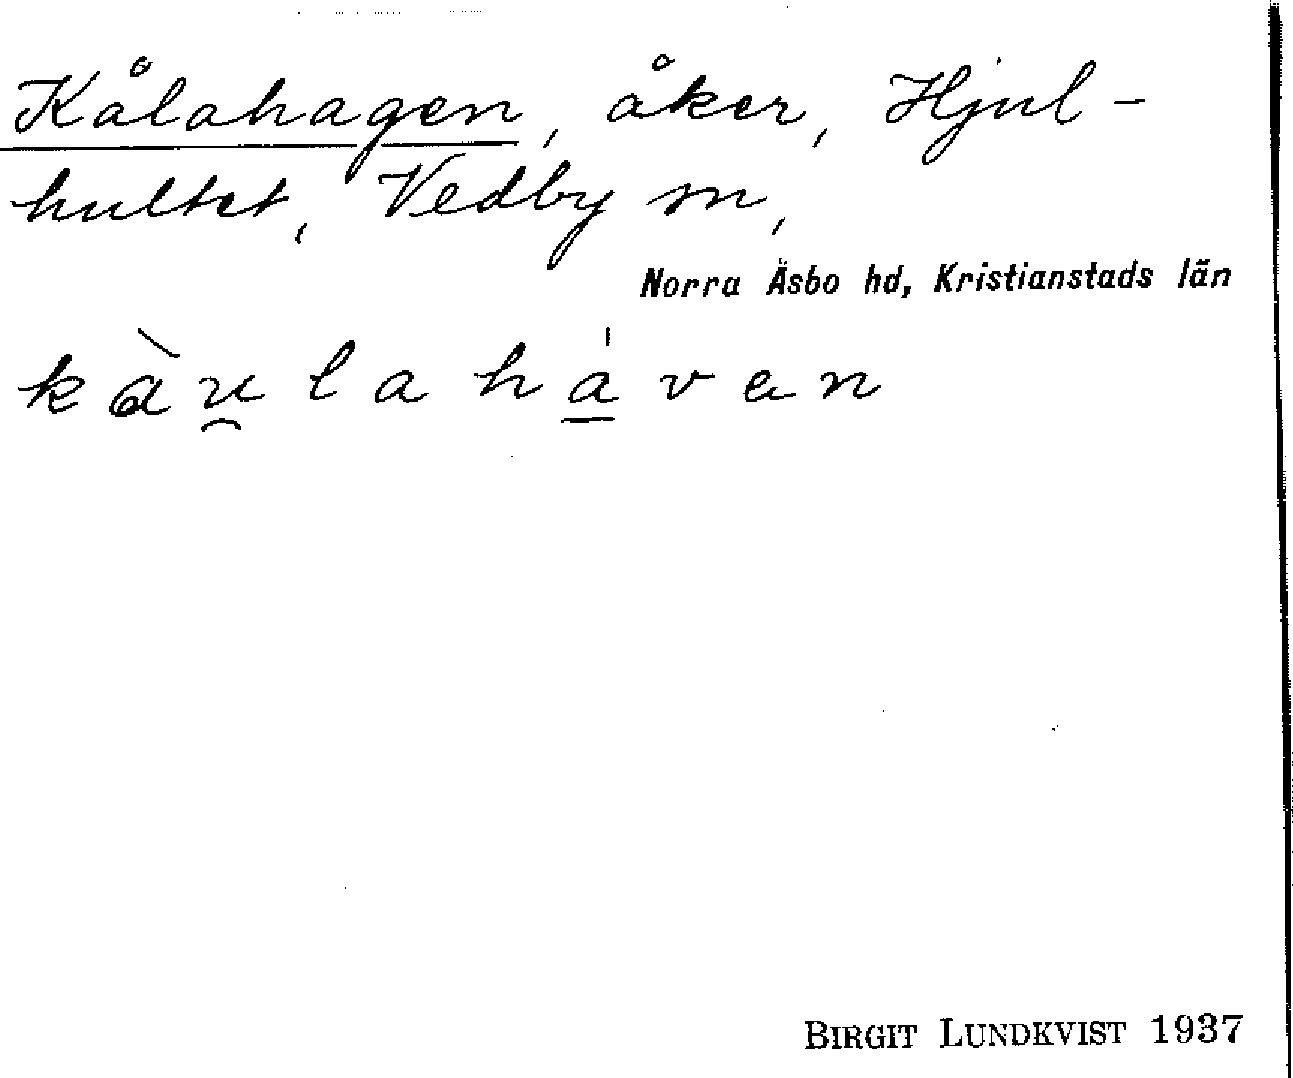 Kålahagen, åker, Hjul-
hultet, Vedby sn,
Norra Åsbo hd, Kristianstads län
kàu̯lahá̲van
BIRGIT LUNDKVIST 1937